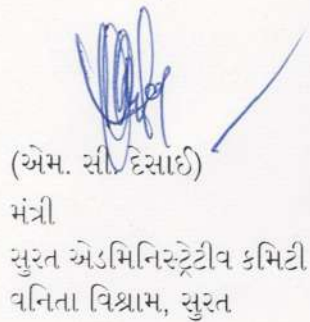 (એમ. સી. દેસાઈ)
મંત્રી
સુરત એડમિનિસ્ટ્રેટીવ કમિટી
વનિતા વિશ્રામ, સુરત